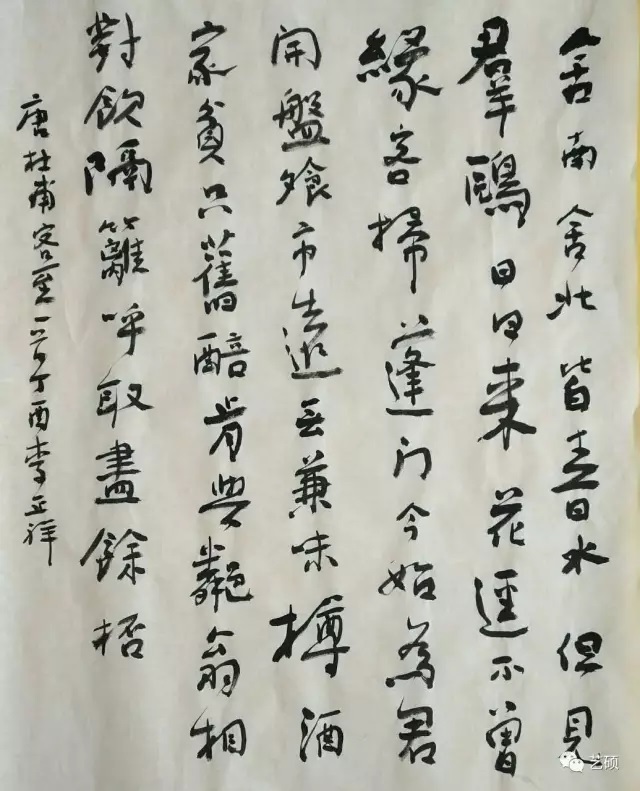 舍南舍北皆春水但見
羣鷗日日来花逕不曾
緣客掃蓬门今始為君
開盤飧市遠无兼味樽酒
家貧只舊醅肯與鄰翁相
對飲隔籬呼取盡餘杯
唐杜甫客至一首丁酉李正祥
艺硕